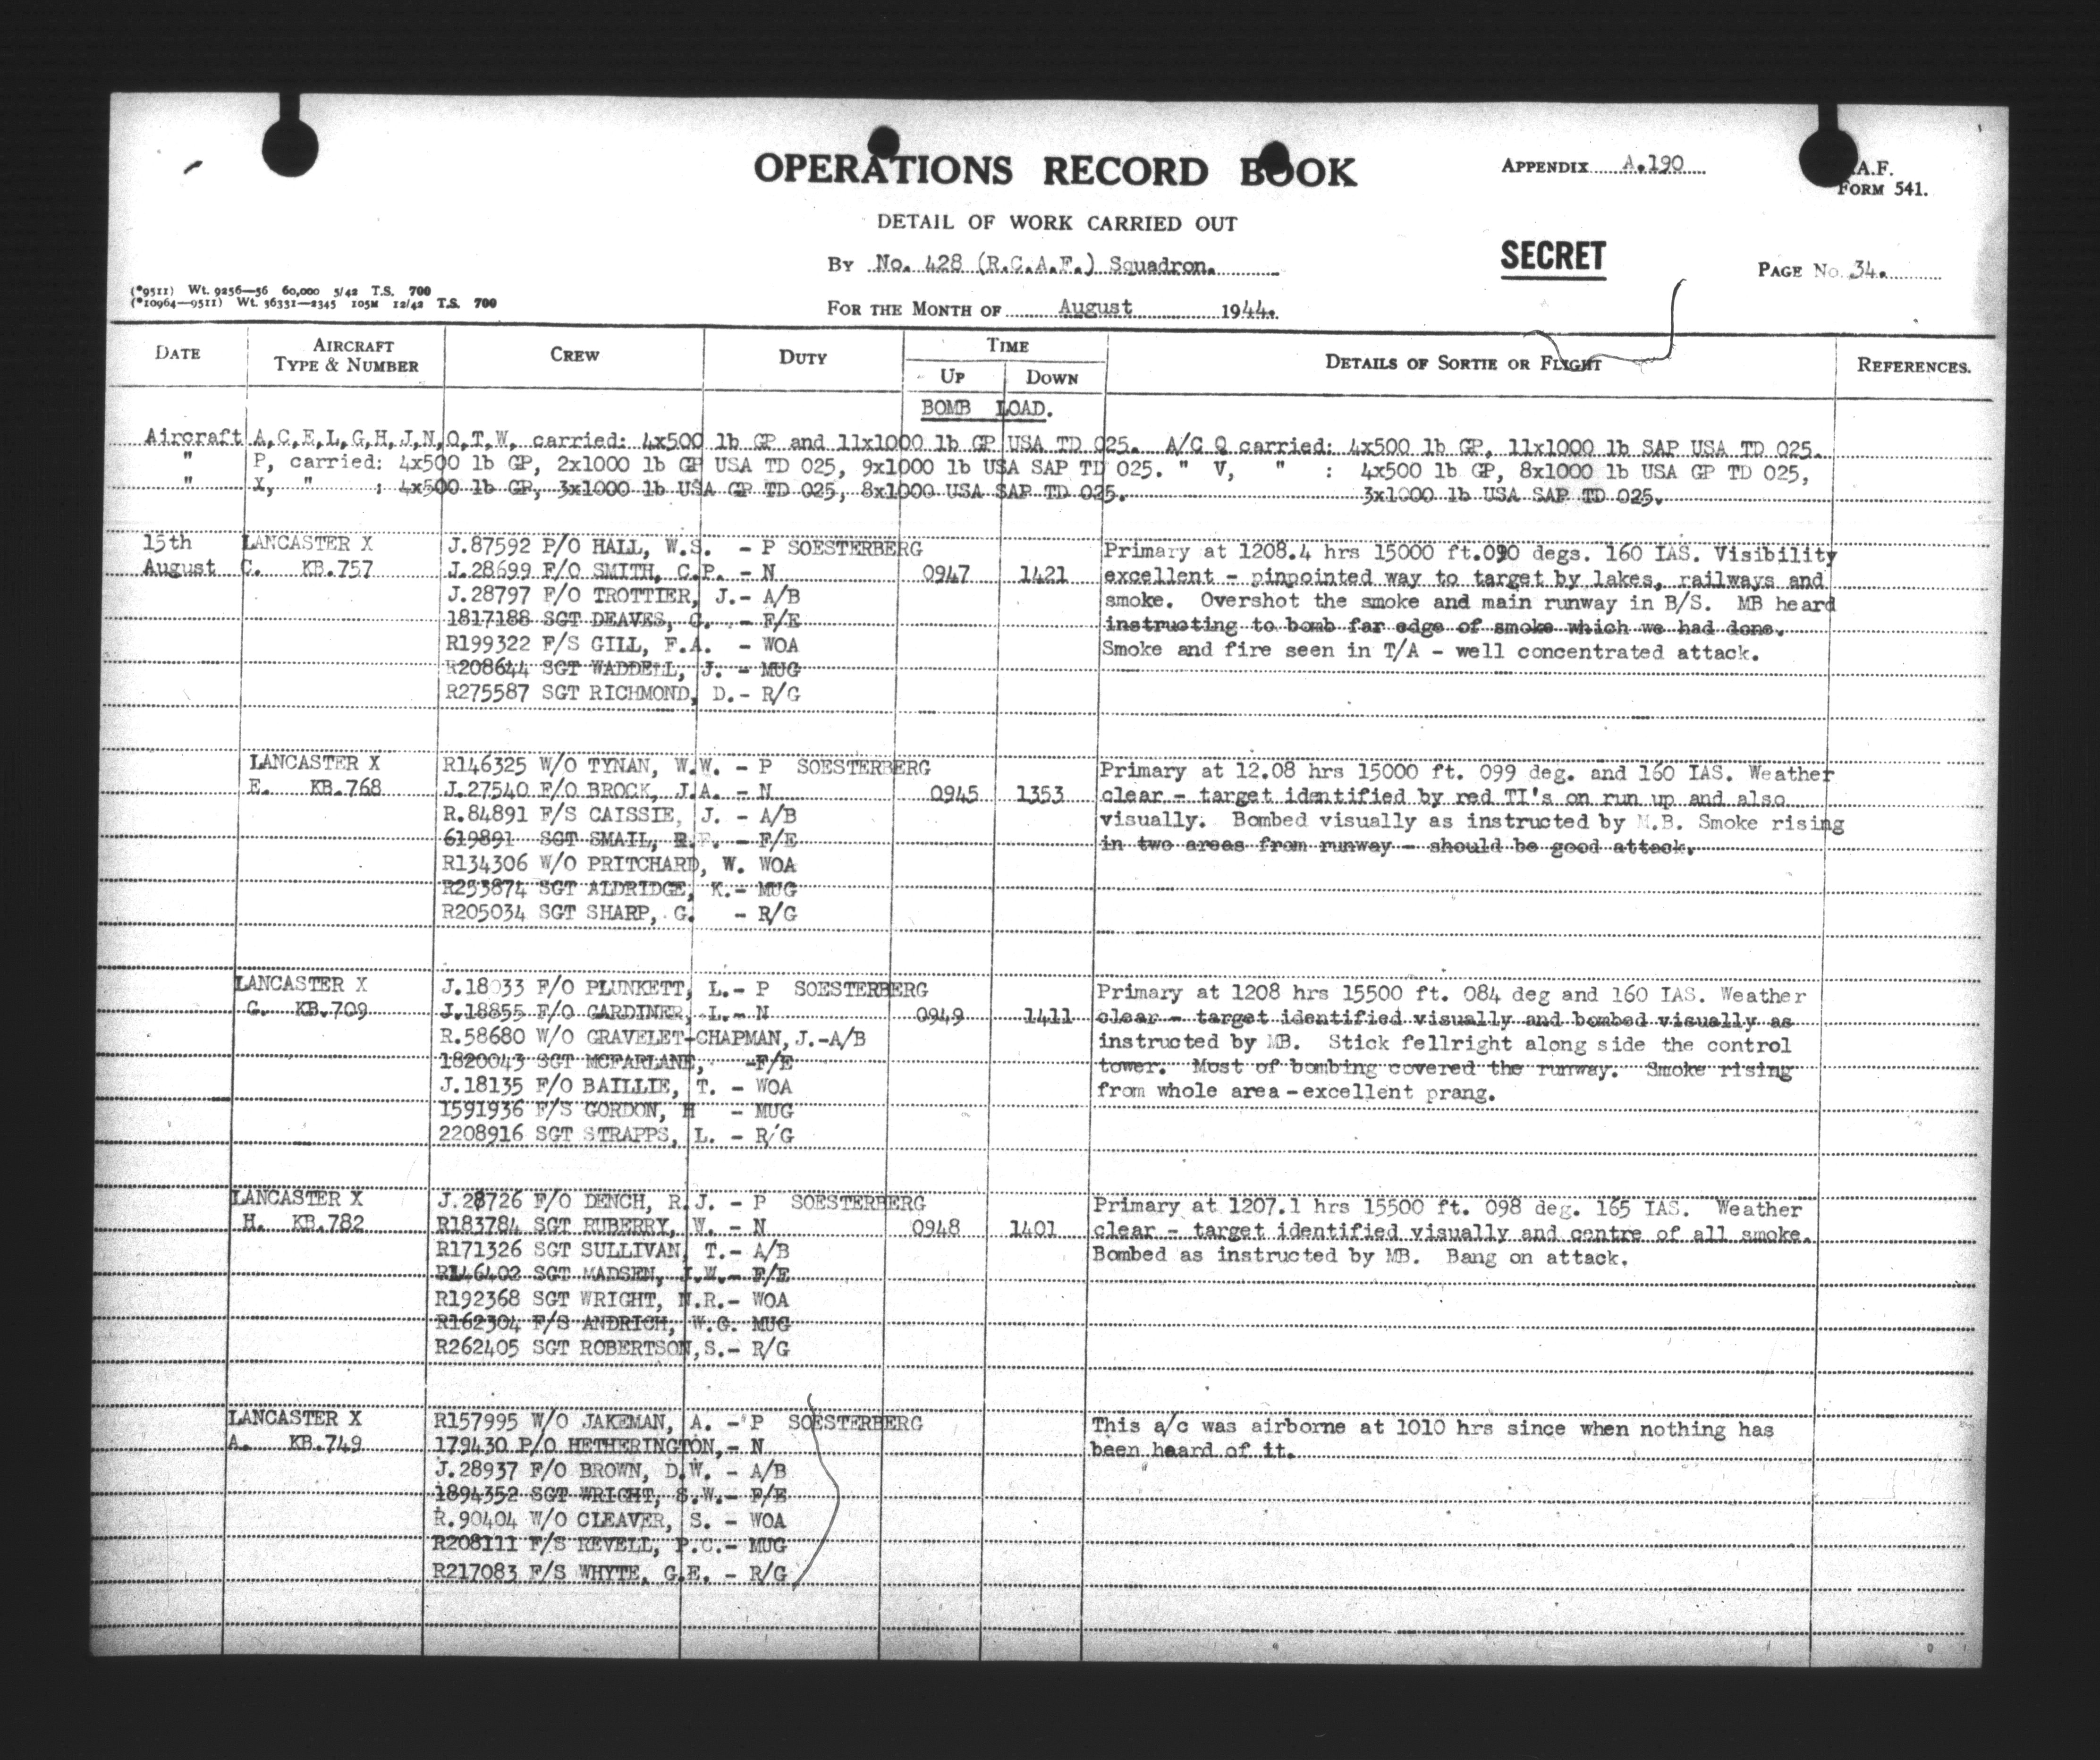 OPERATIONS RECORD BOOK
APPENDIX A.190
A.F.
FORM 541.
DETAIL OF WORK CARRIED OUT
By No. 428 (R.C.A.F.) Squadron.
SECRET
PAGE No. 34.
(*9511) Wt. 9256—56 60,000 5/42 T.S. 700
(*10964—9511) Wt. 36331—2345 105M 12/42 T.S. 700
FOR THE MONTH OF August 1944.
DATE AIRCRAFT TYPE & NUMBER CREW DUTY TIME UP DOWN DETAILS OF SORTIE OR FLIGHT REFERENCES.
BOMB LOAD.
Aircraft A,C,E,L,G,H,J,N,O,T,W, carried: 4x500 lb GP and 11x1000 lb GP USA TD 025. A/C Q carried: 4x500 lb GP, 11x1000 lb SAP USA TD 025.
" P, carried: 4x500 lb GP, 2x1000 lb GP USA TD 025, 9x1000 lb USA SAP TD 025. " V, " : 4x500 lb GP, 8x1000 lb USA GP TD 025,
" X, " : 4x500 lb GP, 3x1000 lb USA GP TD 025, 8x1000 USA SAP TD 025. 3x1000 lb USA SAP TD 025.
15th LANCASTER X J.87592 P/O HALL, W.S. - P SOESTERBERG Primary at 1208.4 hrs 15000 ft.090 degs. 160 IAS. Visibility
August C. KB.757 J.28699 F/O SMITH, C.P. - N 0947 1421 excellent - pinpointed way to target by lakes, railways and
J.28797 F/O TROTTIER, J.- A/B smoke. Overshot the smoke and main runway in B/S. MB heard
1817188 SGT DEAVES, G. - F/E instructing to bomb far edge of smoke which we had done.
R199322 F/S GILL, F.A. - WOA Smoke and fire seen in T/A - well concentrated attack.
R208644 SGT WADDELL, J. - MUG
R275587 SGT RICHMOND, D.- R/G
LANCASTER X R146325 W/O TYNAN, W.W. - P SOESTERBERG Primary at 12.08 hrs 15000 ft. 099 deg. and 160 IAS. Weather
E. KB.768 J.27540 F/O BROCK, J.A. - N 0945 1353 clear - target identified by red TI's on run up and also
R.84891 F/S CAISSIE, J. - A/B visually. Bombed visually as instructed by M.B. Smoke rising
619891 SGT SMAIL, R.F. - F/E in two areas from runway - should be good attack.
R134306 W/O PRITCHARD, W. WOA
R253874 SGT ALDRIDGE, K.- MUG
R205034 SGT SHARP, G. - R/G
LANCASTER X J.18033 F/O PLUNKETT, L.- P SOESTERBERG Primary at 1208 hrs 15500 ft. 084 deg and 160 IAS. Weather
G. KB.709 J.18855 F/O GARDINER, L.- N 0949 1411 clear - target identified visually and bombed visually as
R.58680 W/O GRAVELET-CHAPMAN, J.-A/B instructed by MB. Stick fellright along side the control
1820043 SGT MCFARLANE, -F/E tower. Most of bombing covered the runway. Smoke rising
J.18135 F/O BAILLIE, T. - WOA from whole area-excellent prang.
1591936 F/S GORDON, H - MUG
2208916 SGT STRAPPS, L. - R/G
LANCASTER X J.28726 F/O DENCH, R.J. - P SOESTERBERG Primary at 1207.1 hrs 15500 ft. 098 deg. 165 IAS. Weather
H. KB.782 R183784 SGT RUBERRY, W. - N 0948 1401 clear - target identified visually and centre of all smoke.
R171326 SGT SULLIVAN, T.- A/B Bombed as instructed by MB. Bang on attack.
R146402 SGT MADSEN, I.W.- F/E
R192368 SGT WRIGHT, N.R.- WOA
R162304 F/S ANDRICH, W.G. MUG
R262405 SGT ROBERTSON,S.- R/G
LANCASTER X R157995 W/O JAKEMAN, A. - P SOESTERBERG This a/c was airborne at 1010 hrs since when nothing has
A. KB.749 179430 P/O HETHERINGTON,- N been heard of it.
J.28937 F/O BROWN, D.W. - A/B
1894352 SGT WRIGHT, S.W.- F/E
R.90404 W/O CLEAVER, S. - WOA
R208111 F/S REVELL, P.C.- MUG
R217083 F/S WHYTE, G.E. - R/G